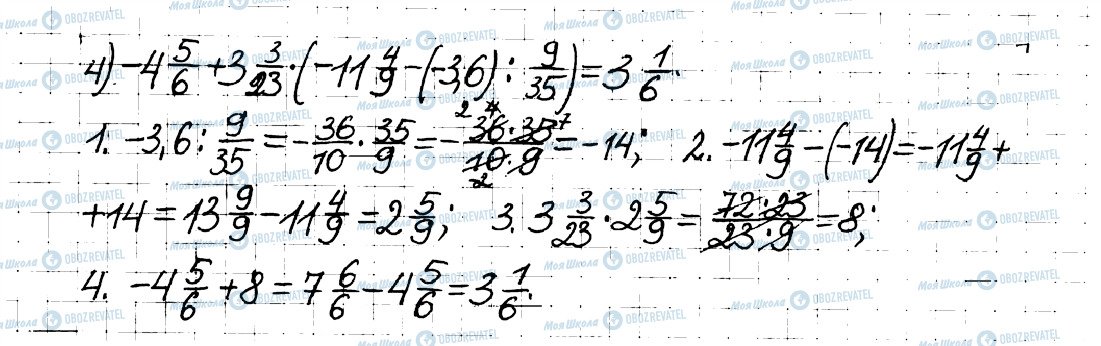 4) -4 5/6 + 3 3/23 · (-11 4/9 - (-3,6) : 9/35) = 3 1/6.
1. -3,6 : 9/35 = - 36/10 · 35/9 = - 36·35/10·9 = -14; 2. -11 4/9 - (-14) = -11 4/9 +
+14 = 13 9/9 - 11 4/9 = 2 5/9; 3. 3 3/23 · 2 5/9 = 72·23/23·9 = 8;
4. -4 5/6 + 8 = 7 6/6 - 4 5/6 = 3 1/6.